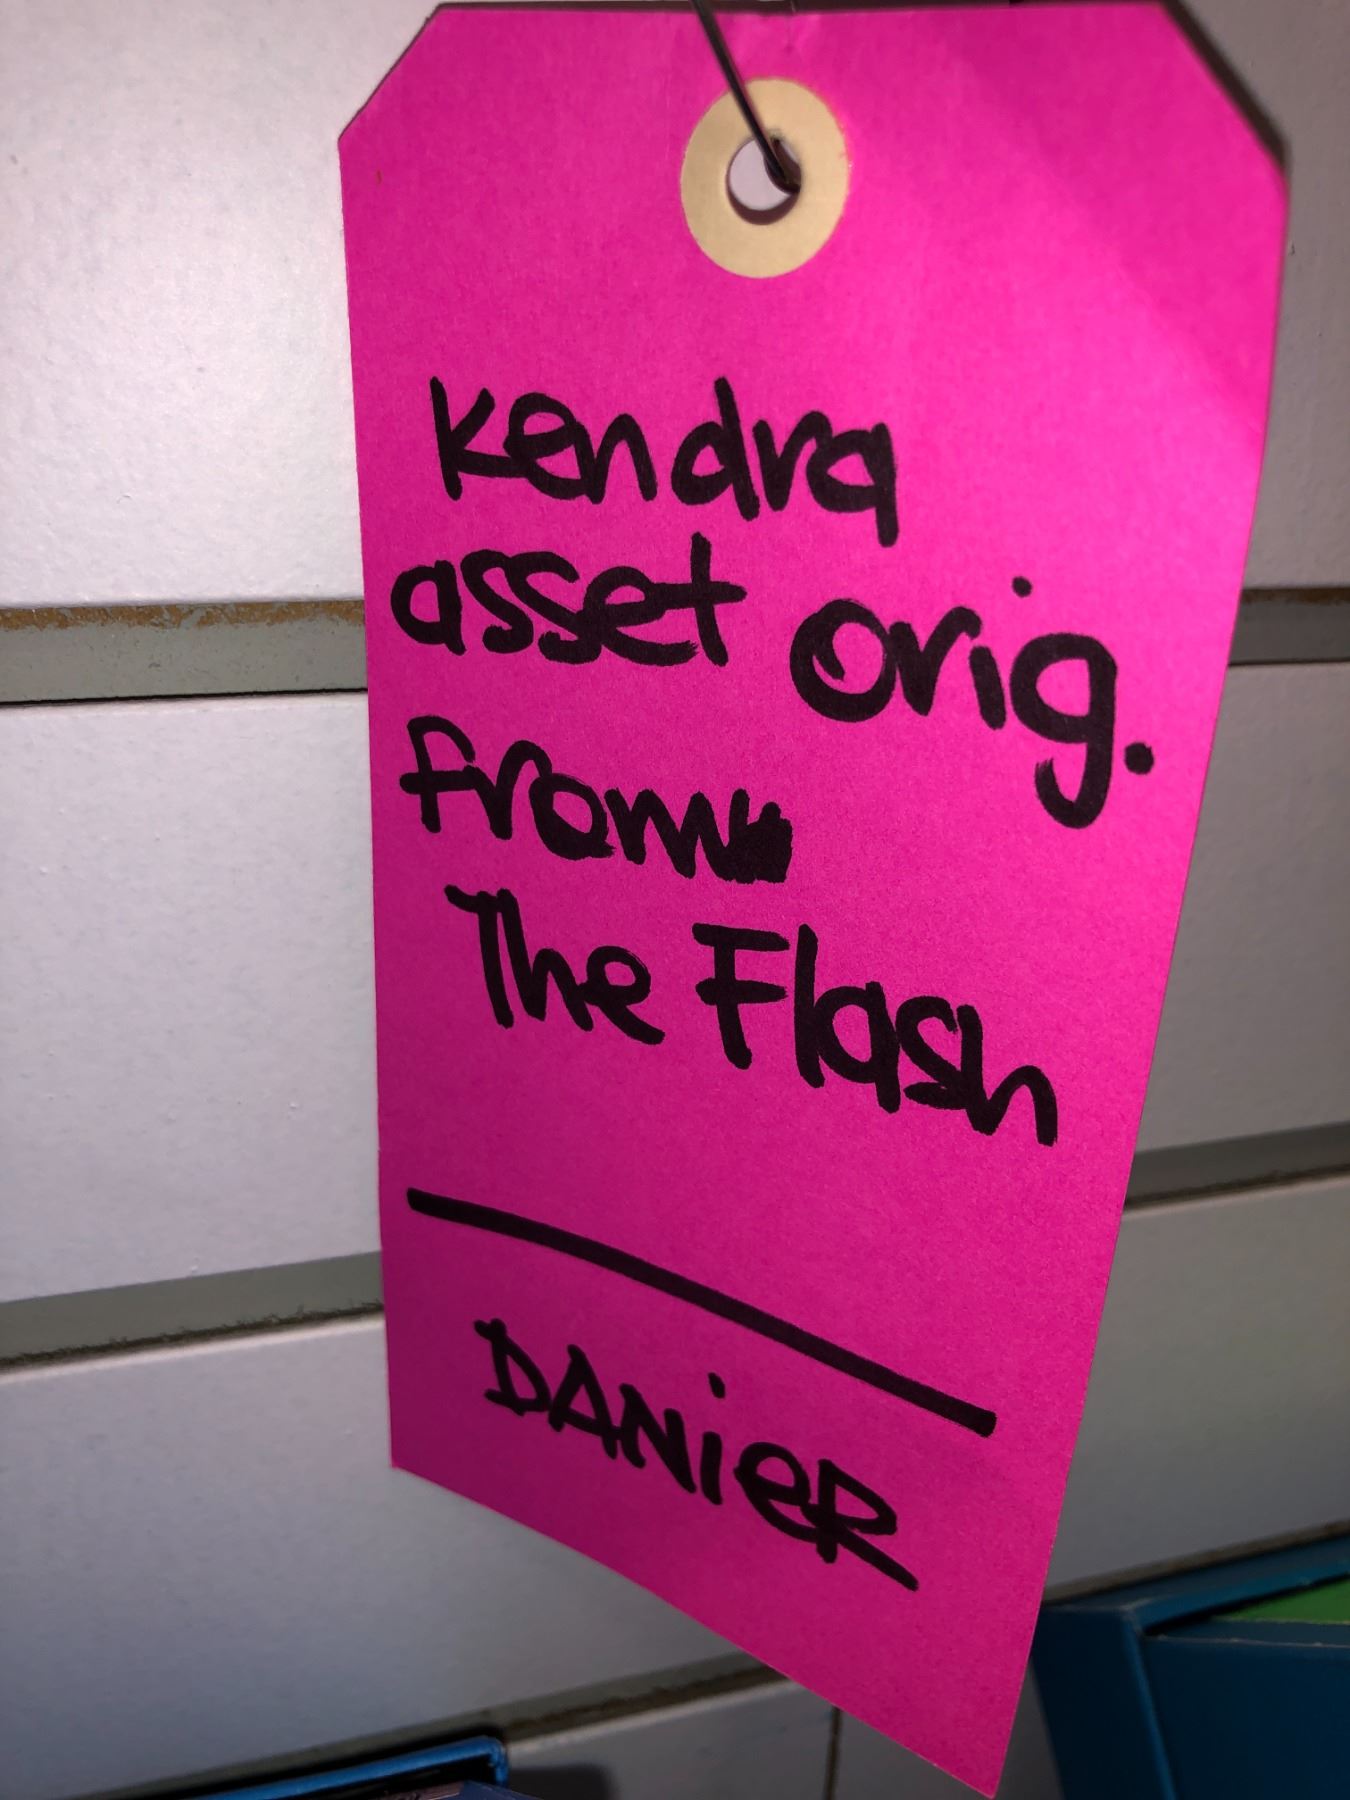 Kendra
asset orig.
from
The Flash
DANieR